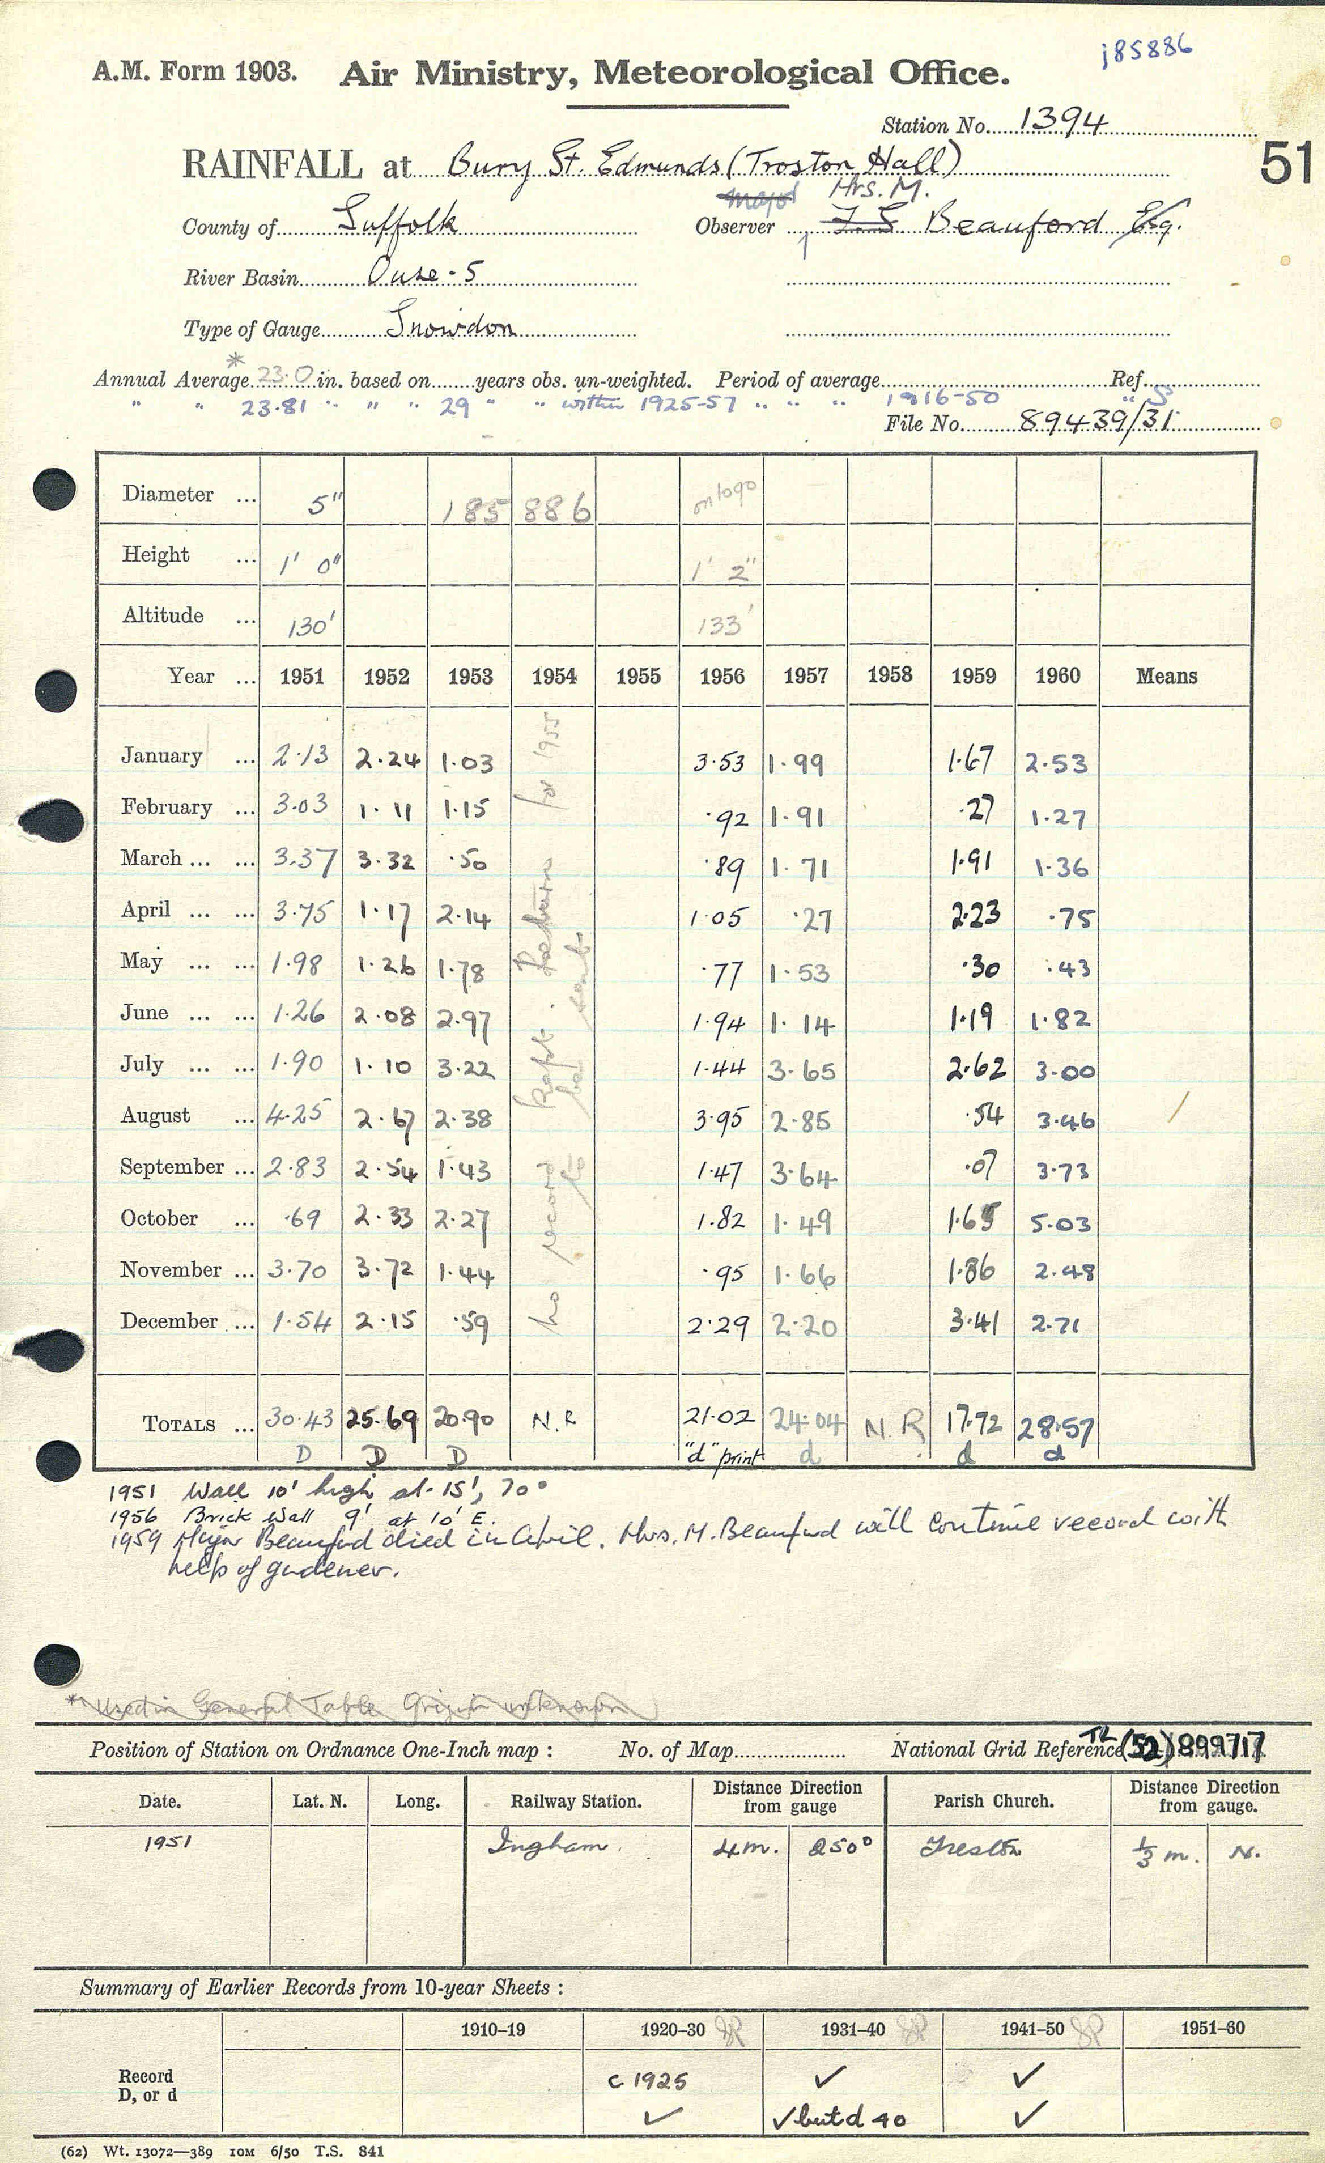 185886
A.M. Form 1903. Air Ministry, Meteorological Office.
Station No. 1394
51
RAINFALL at Bury St. Edmunds (Troston Hall)
Major Mrs. M.
County of Suffolk Observer Beauford Esq.
River Basin Ouse-5
Type of Gauge Snowdon
Annual Average *23.0 in. based on years obs. un-weighted. Period of average Ref.
" " 23.81 " " " 29 " " within 1925-57 " " " 1916-50 " S
File No. 89439/31
Diameter ... 5" 185886
Height ... 1' 0" 1' 2"
Altitude ... 130' 133'
Year ... 1951 1952 1953 1954 1955 1956 1957 1958 1959 1960 Means
January ... 2.13 2.24 1.03 3.53 1.99 1.67 2.53
February ... 3.03 1.11 1.15 .92 1.91 .27 1.27
March ... ... 3.37 3.32 .50 .89 1.71 1.91 1.36
April ... ... 3.75 1.17 2.14 1.05 .27 2.23 .75
May ... ... 1.98 1.26 1.78 .77 1.53 .30 .43
June ... ... 1.26 2.08 2.97 1.94 1.14 1.19 1.82
July ... ... 1.90 1.10 3.22 1.44 3.65 2.62 3.00
August ... 4.25 2.67 2.38 3.95 2.85 .54 3.46
September ... 2.83 2.54 1.43 1.47 3.64 .07 3.73
October ... .69 2.33 2.27 1.82 1.49 1.65 5.03
November ... 3.70 3.72 1.44 .95 1.66 1.86 2.48
December ... 1.54 2.15 .59 2.29 2.20 3.41 2.71
no record kept. Return for 1955
to be sent
TOTALS ... 30.43 25.69 20.90 N.R 21.02 24.04 N.R 17.72 28.57
D D D "d" print d d d
1951 Wall 10' high at 15', 70°
1956 Brick Wall 9' at 10' E.
1959 Major Beauford died in April. Mrs. M. Beauford will continue record with
help of gardener.
* Used in General Table Origin unknown
Position of Station on Ordnance One-Inch map : No. of Map National Grid Reference TL (52) 899717
Date. Lat. N. Long. Railway Station. Distance Direction from gauge Parish Church. Distance Direction from gauge.
1951 Ingham 4 m. 250° Troston 1/3 m. N.
Summary of Earlier Records from 10-year Sheets :
1910–19 1920–30 1931–40 1941–50 1951–60
Record c 1925 ✓ ✓
D, or d ✓ ✓ but d 40 ✓
(62) Wt. 13072—389 10M 6/50 T.S. 841